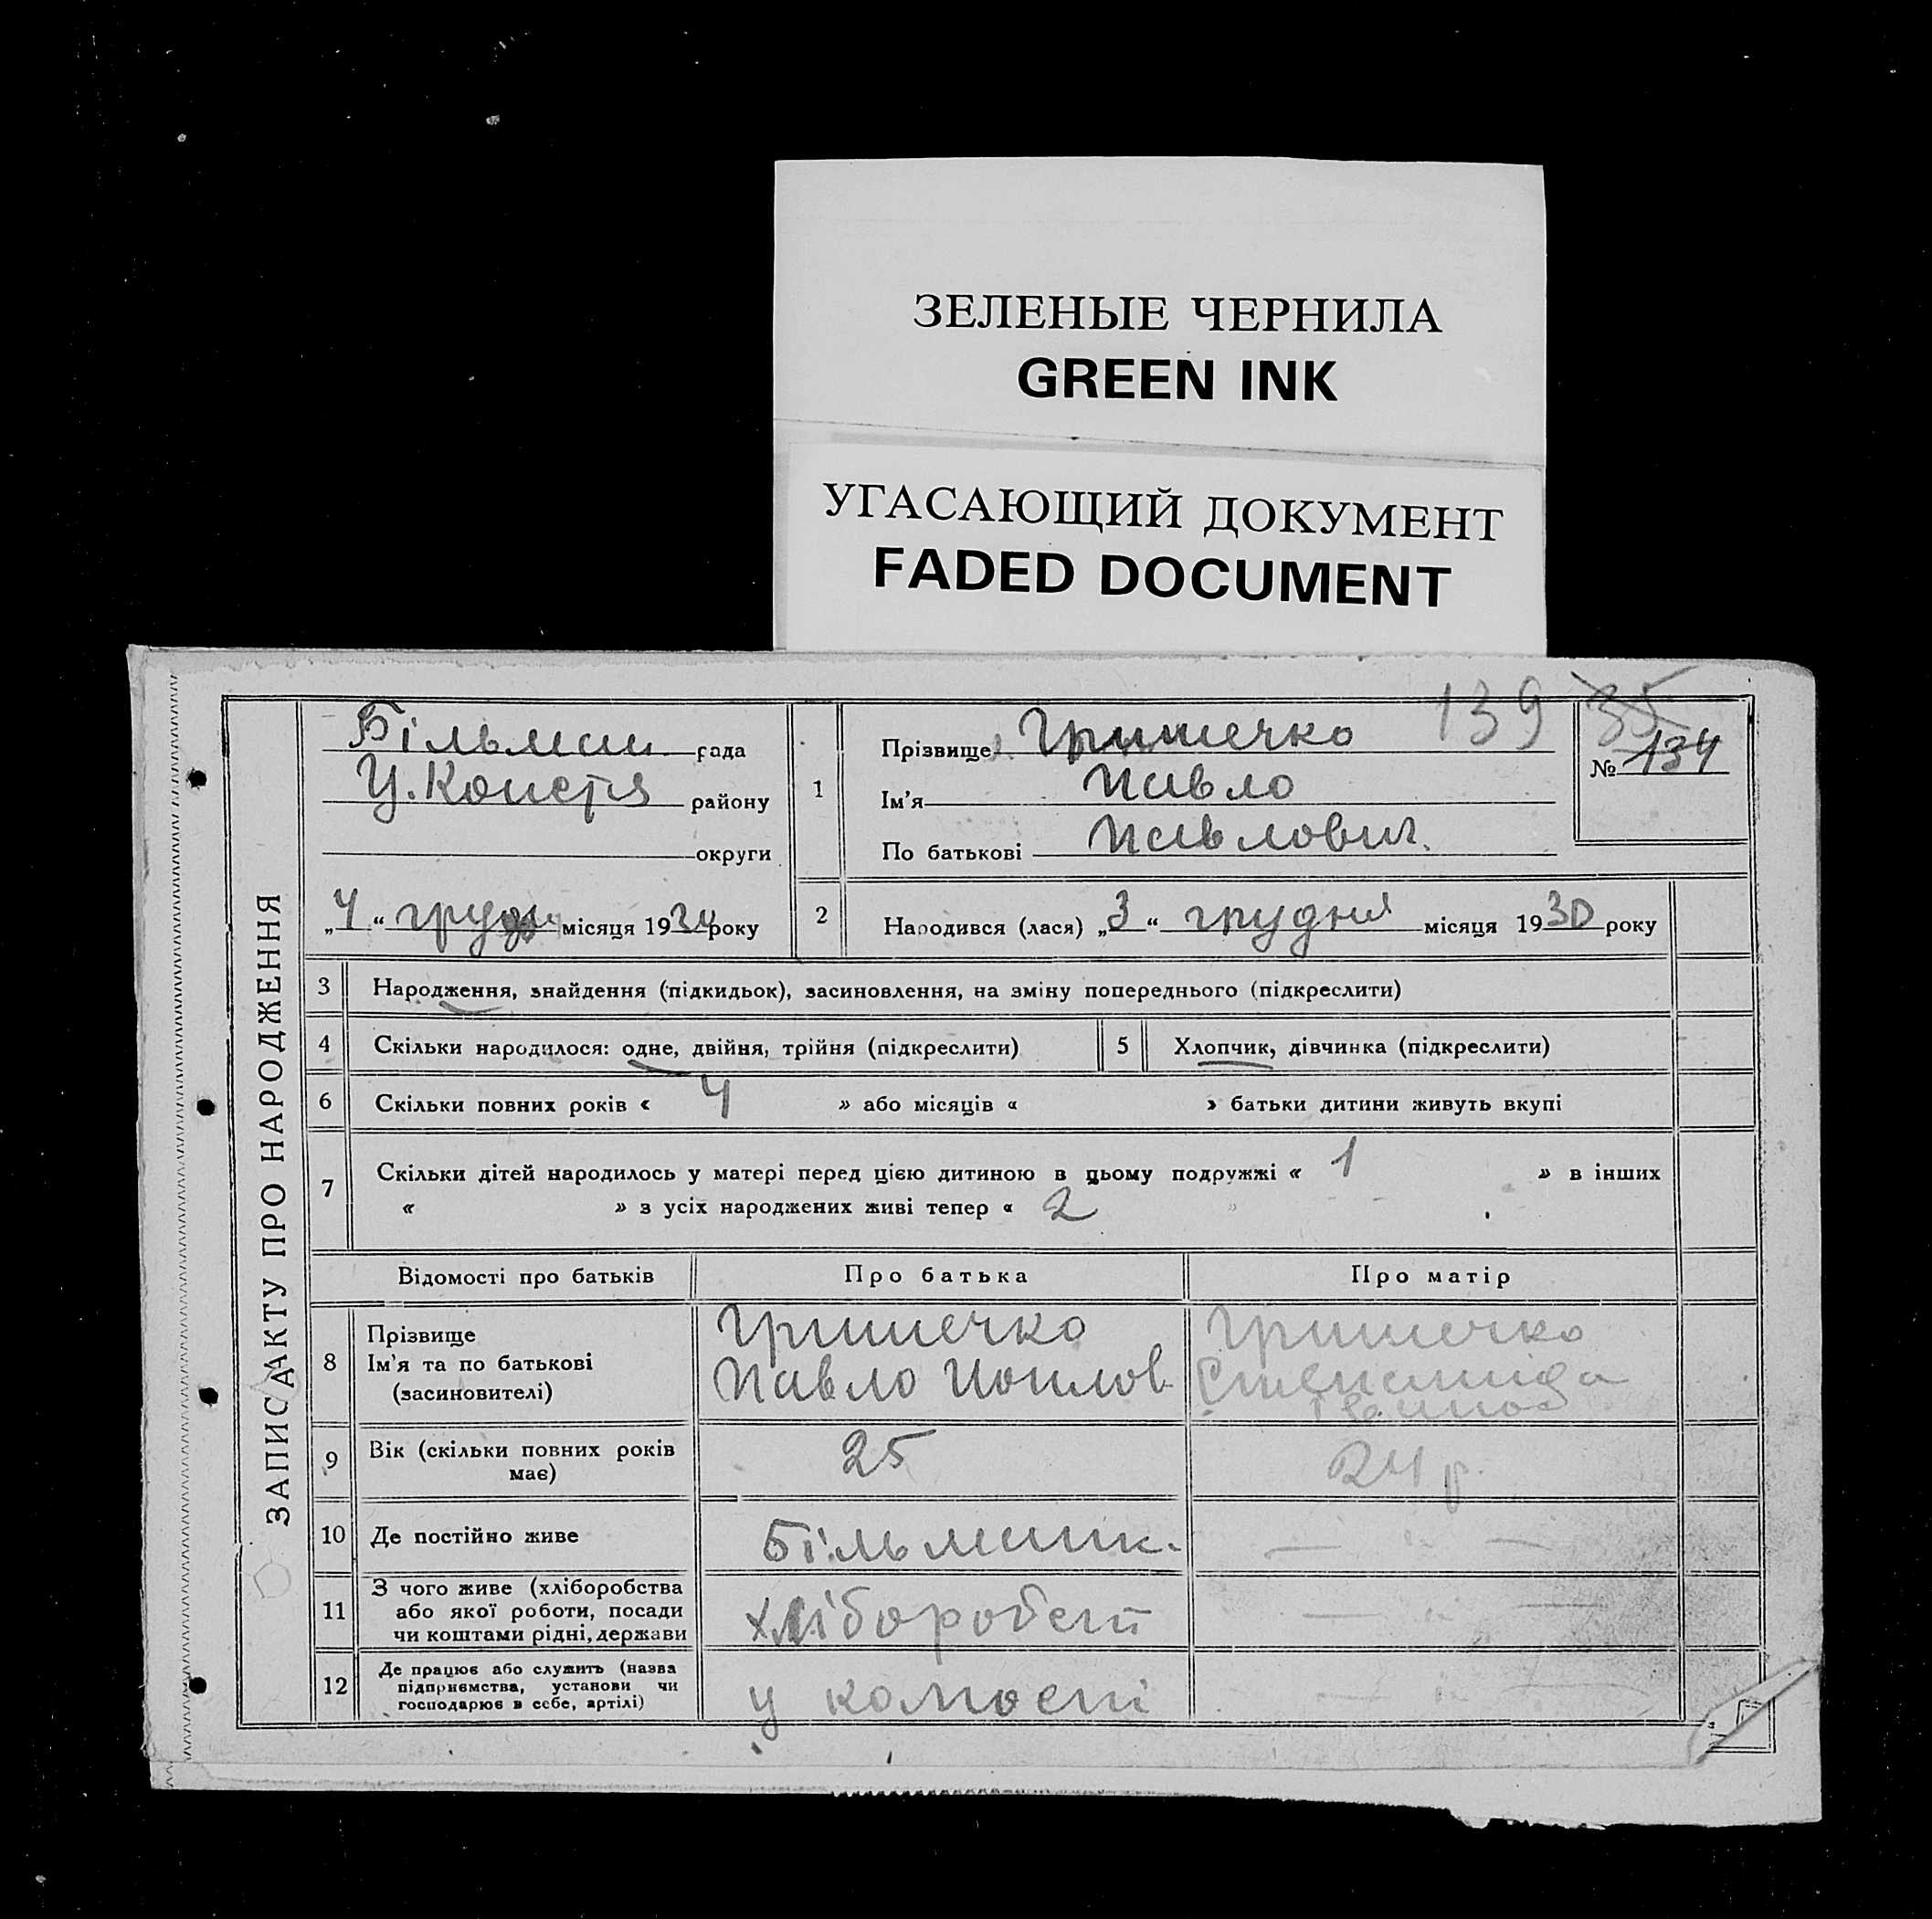 ЗЕЛЕНЫЕ ЧЕРНИЛА
GREEN INK
УГАСАЮЩИЙ ДОКУМЕНТ
FADED DOCUMENT
ЗАПИС АКТУ ПРО НАРОДЖЕННЯ
рада
району
округи
„4“ місяця 19 року
139 35
№ 134
1 Прізвище Гришечко
Ім'я Павло
По батькові Павлович.
2 Народився (лася) „3“ грудня місяця 1930 року
3 Народження, знайдення (підкидьок), засиновлення, на зміну попереднього (підкреслити)
4 Скільки народилося: одне, двійня, трійня (підкреслити) 5 Хлопчик, дівчинка (підкреслити)
6 Скільки повних років « 4 » або місяців « » батьки дитини живуть вкупі
7 Скільки дітей народилось у матері перед цією дитиною в цьому подружжі « 1 » в інших
« » з усіх народжених живі тепер « 2 »
Відомості про батьків Про батька Про матір
8 Прізвище Гришечко Гришечко
Ім'я та по батькові Павло
(засиновителі)
9 Вік (скільки повних років 25 24 р.
має)
10 Де постійно живе
11 З чого живе (хліборобства
або якої роботи, посади хлібороб
чи коштами рідні, держави
12 Де працює або служить (назва
підприємства, установи чи у
господарює в себе, артілі)